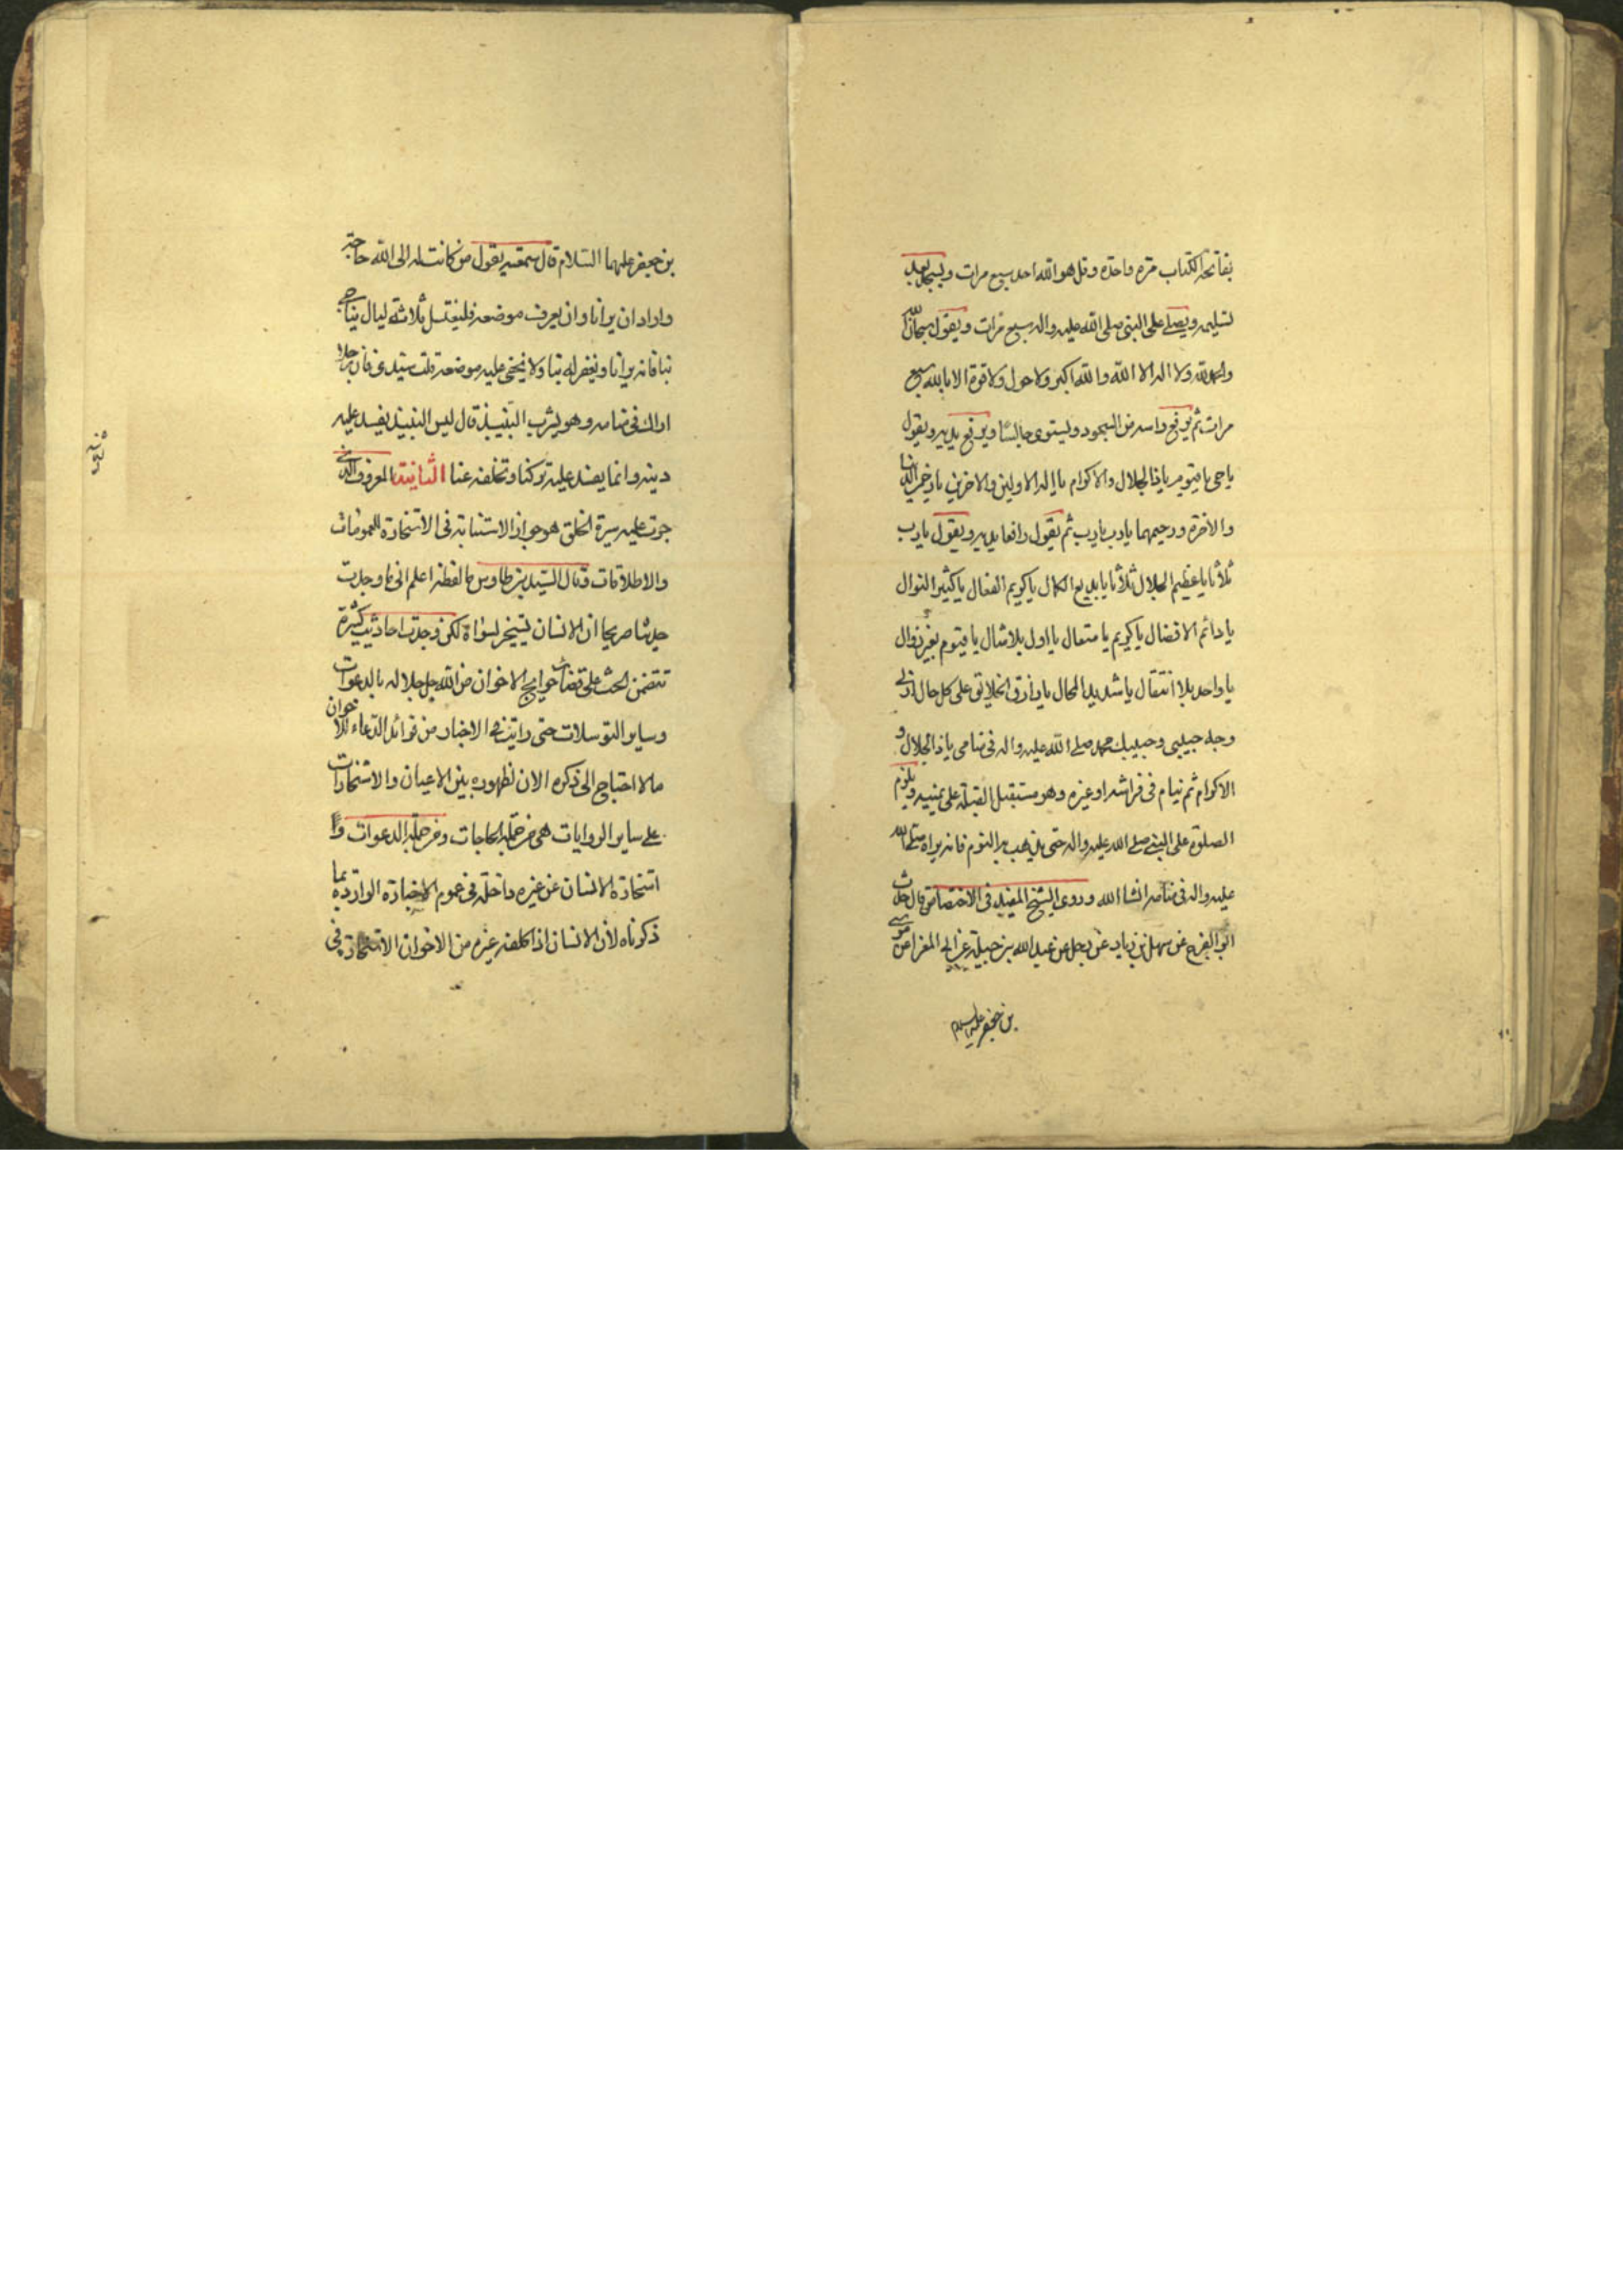 بفاتحة الكتاب مرة واحدة وقل هو الله احد سبع مرات ويسجد بعد
تسليمه ويصلي على النبي صلى الله عليه واله سبع مرات ويقول سبحان الله
والحمد لله ولا اله الا الله والله اكبر ولا حول ولا قوة الا بالله سبع
مرات ثم يرفع راسه من السجود ويستوى جالسًا ويرفع يديه ويقول
يا حي يا قيوم يا ذا الجلال والاكرام يا اله الاولين والاخرين يا رحمن الدنيا
والاخرة ورحيمهما يا رب يا رب ثم يقول رافعا يديه ويقول يا رب
ثلاثا يا عظيم الجلال ثلاثا يا بديع الكمال يا كريم الفعال يا كثير النوال
يا دائم الافضال يا كريم يا متعال يا اول بلا مثال يا قيوم بغير زوال
يا واحد بلا انتقال يا شديد المحال يا رازق الخلايق على كل حال ارنى
وجه حبيبى وحبيبك محمد صلى الله عليه واله فى منامى يا ذا الجلال و
الاكرام ثم ينام فى فراشه او غيره وهو مستقبل القبلة على يمينه ويلزم
الصلوة على النبي صلى الله عليه واله حتى يذهب به النوم فانه يراه صلى الله
عليه واله فى منامه انشا الله وروى الشيخ المفيد فى الاختصاص قال حدث
ابو الفرج عن سهل بن زياد عن رجل عن عبد الله بن جبلة عن ابى المغرا عن موسى
بن جعفر عليه السلام
بن جعفر عليهما السلام قال سمعته يقول من كانت له الى الله حاجة
واراد ان يرانا وان يعرف موضعه فليغتسل ثلاثة ليال يناجى
بنا فانه يرانا ويغفر له بنا ولا يخفى عليه موضعه قلت سيدى فان رجلا
اراك فى منامه وهو يشرب النبيذ قال ليس النبيذ يفسد عليه
دينه وانما يفسد عليه تركنا وتخلفه عنا الثانية المعروف الذى
جرت عليه سيرة الخلق هو جواز الاستنابة فى الاستخارة للعمومات
والاطلاقات وقال السيد بن طاوس ما لفظه اعلم انى ما وجدت
حديثا صريحا ان الانسان يستخير لسواه لكن وجدت احاديث كثيرة
تتضمن الحث على قضاء حوايج الاخوان من الله جل جلاله بالدعوات
وساير التوسلات حتى رايت فى الاخبار من فوائد الدعاء للاخوان
ما لا احتاج الى ذكره الان لظهوره بين الاعيان والاستخارات
على ساير الروايات هى من جملة الحاجات ومن جملة الدعوات و
استخارة الانسان عن غيره داخلة فى عموم الاخبار الواردة بما
ذكرناه لأن الانسان اذا كلفه غيره من الاخوان الاستخارة فى